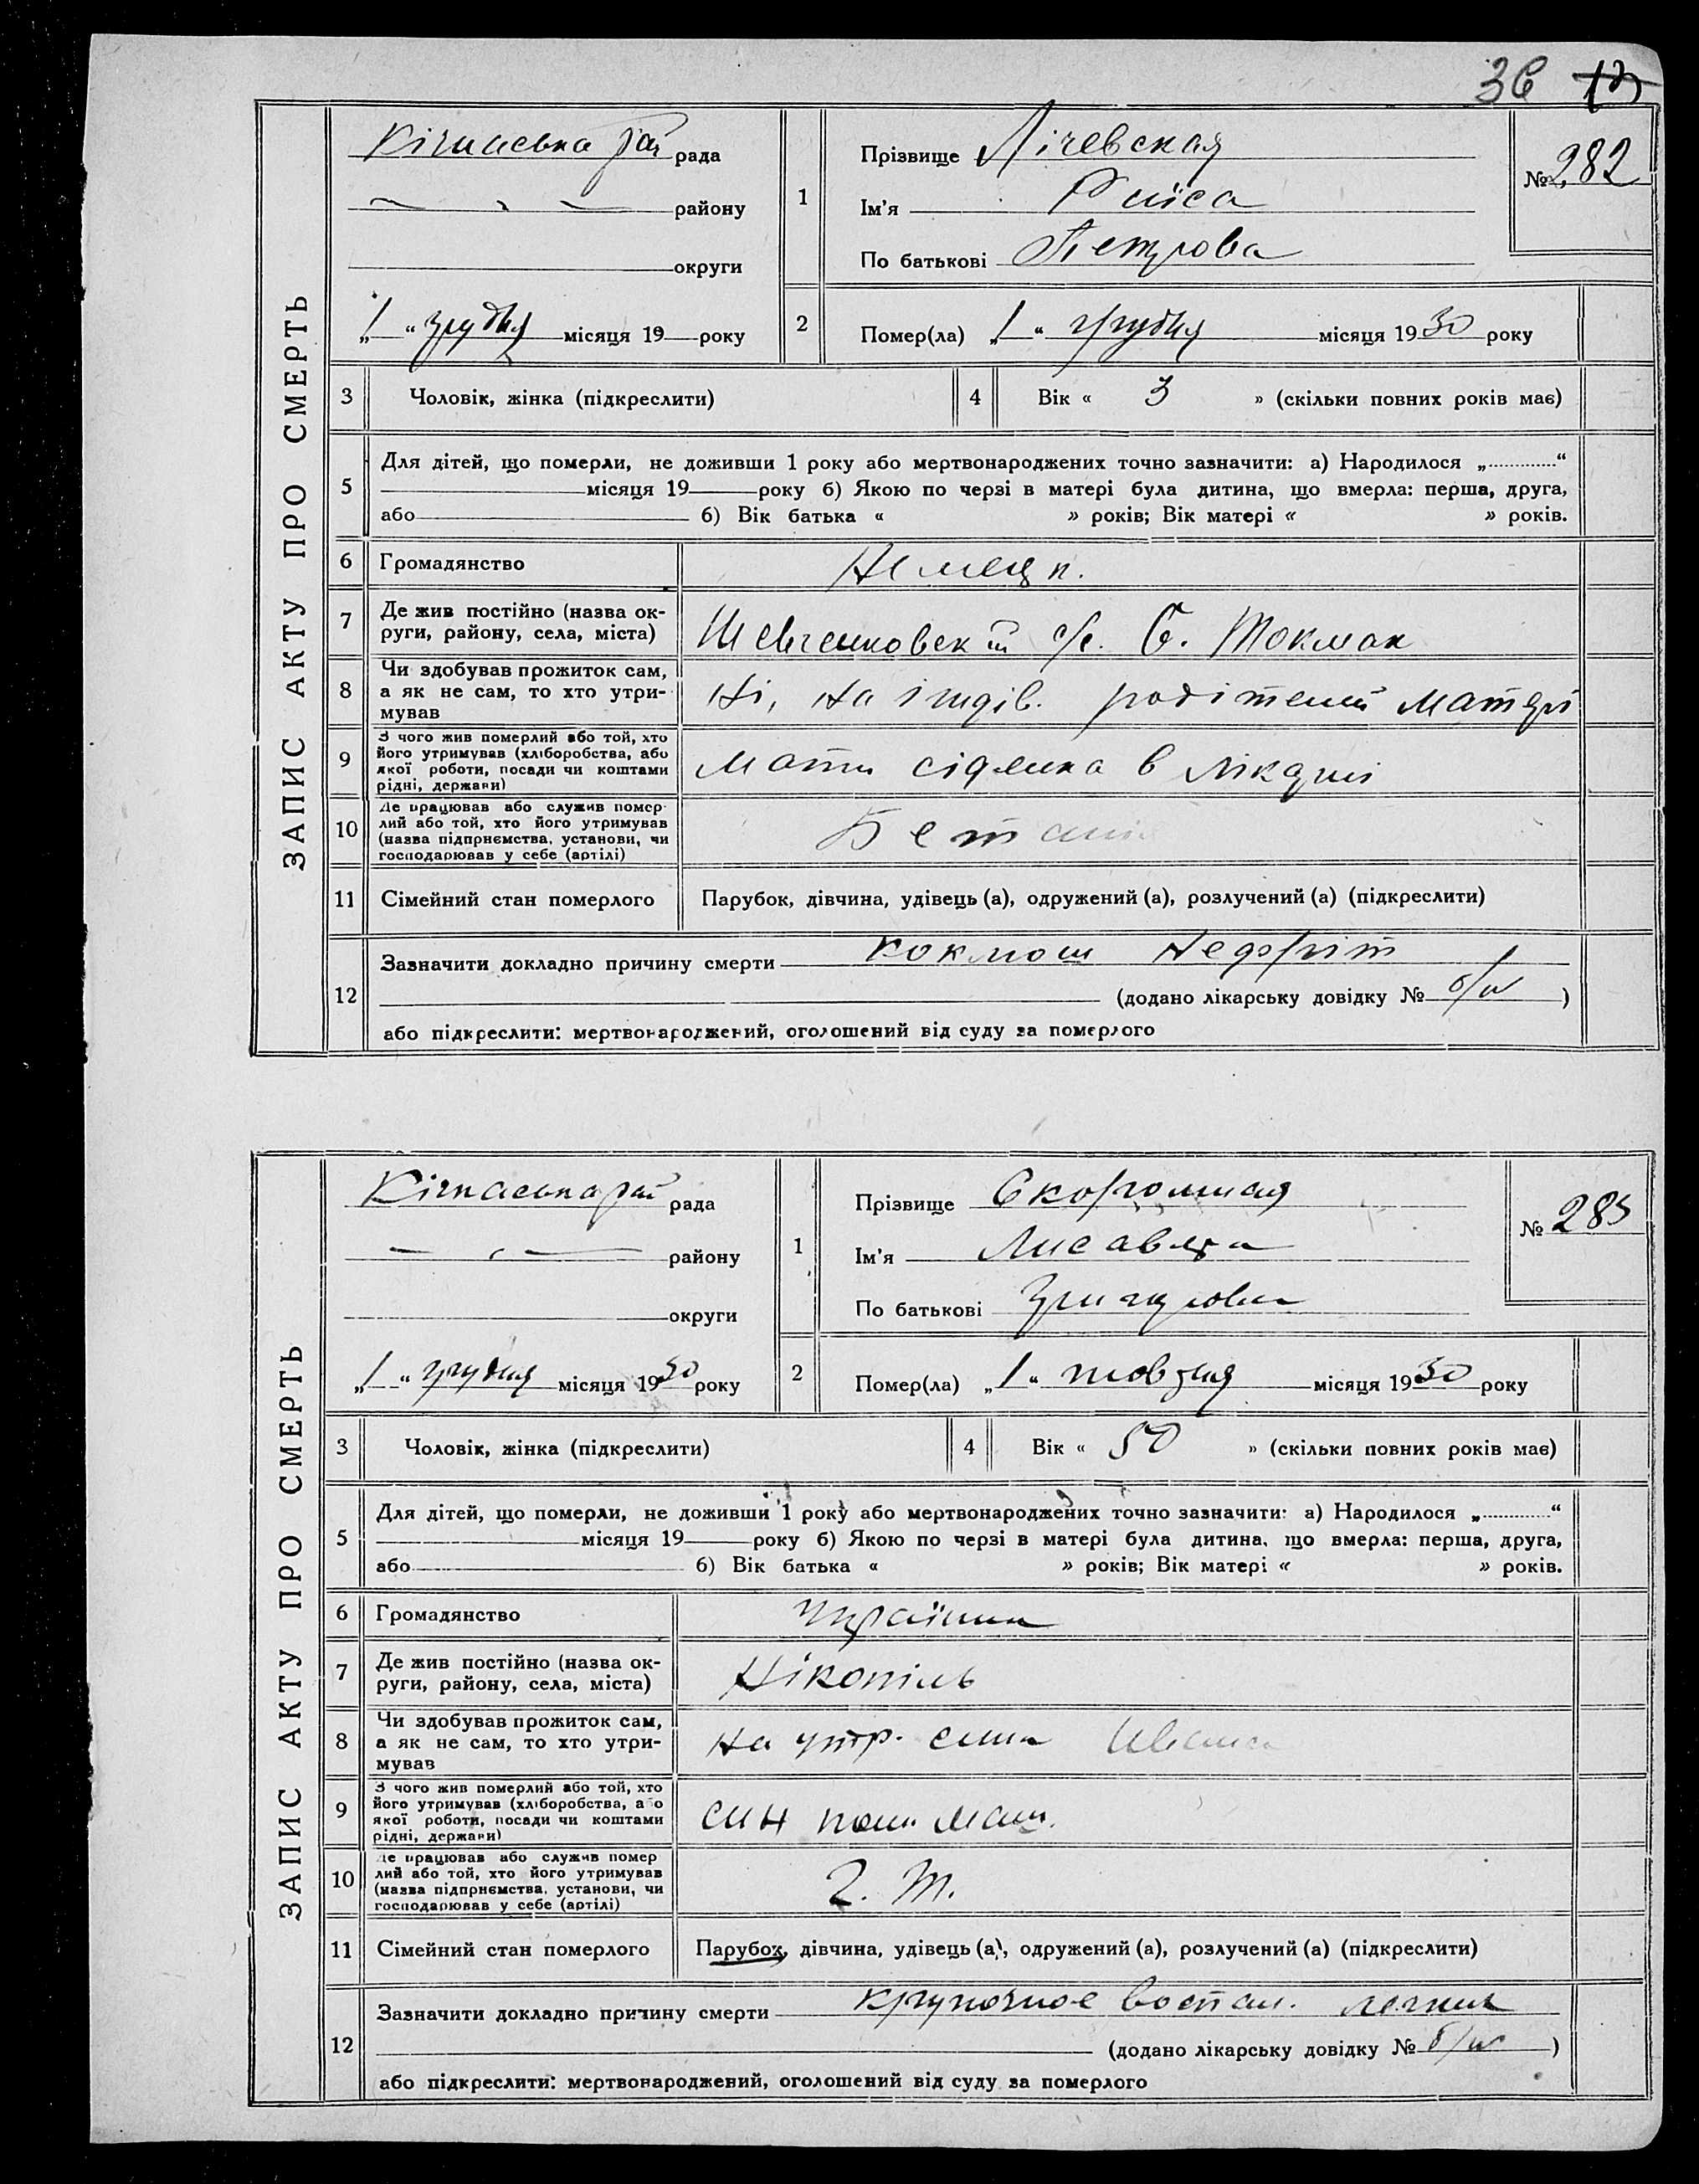 36
ЗАПИС АКТУ ПРО СМЕРТЬ
Кічкаська рай рада
району
округи
„1“ грудня місяця 19 року
1
Прізвище Лічевская
Ім'я Раїса
По батькові Петрова
№ 282
2
Помер(ла) „1“ грудня місяця 1930 року
3 Чоловік, жінка (підкреслити)
4 Вік « 3 » (скільки повних років має)
5 Для дітей, що померли, не доживши 1 року або мертвонароджених точно зазначити: а) Народилося „ “
місяця 19 року б) Якою по черзі в матері була дитина, що вмерла: перша, друга,
або б) Вік батька « » років; Вік матері « » років.
6 Громадянство Немецк.
7 Де жив постійно (назва ок-
руги, району, села, міста)
Шевченковский с/с. Б. Токмак
8 Чи здобував прожиток сам,
а як не сам, то хто утри-
мував
Ні, на
9 З чого жив померлий або той, хто
його утримував (хліборобства, або
якої роботи, посади чи коштами
рідні, держави)
Мати сіделка в лікарні
10 Де працював або служив помер-
лий або той, хто його утримував
(назва підприємства, установи, чи
господарював у себе (артілі)
11 Сімейний стан померлого Парубок, дівчина, удівець (а), одружений (а), розлучений (а) (підкреслити)
12 Зазначити докладно причину смерти коклюш
(додано лікарську довідку № б/н )
або підкреслити: мертвонароджений, оголошений від суду за померлого
ЗАПИС АКТУ ПРО СМЕРТЬ
Кічкаська рай рада
району
округи
„1“ грудня місяця 1930 року
1
Прізвище Скоромная
Ім'я Лисавета
По батькові Григорова
№ 283
2
Помер(ла) „1“ жовтня місяця 1930 року
3 Чоловік, жінка (підкреслити)
4 Вік « 50 » (скільки повних років має)
5 Для дітей, що померли, не доживши 1 року або мертвонароджених точно зазначити: а) Народилося „ “
місяця 19 року б) Якою по черзі в матері була дитина, що вмерла: перша, друга,
або б) Вік батька « » років; Вік матері « » років.
6 Громадянство Україинка
7 Де жив постійно (назва ок-
руги, району, села, міста)
Нікопіль
8 Чи здобував прожиток сам,
а як не сам, то хто утри-
мував
на утр. сина Ивана
9 З чого жив померлий або той, хто
його утримував (хліборобства, або
якої роботи, посади чи коштами
рідні, держави)
син пом. маш.
10 Де працював або служив помер
лий або той, хто його утримував
(назва підприємства, установи, чи
господарював у себе (артілі)
11 Сімейний стан померлого Парубок, дівчина, удівець (а), одружений (а), розлучений (а) (підкреслити)
12 Зазначити докладно причину смерти крупозное воспал. легких
(додано лікарську довідку № б/н )
або підкреслити: мертвонароджений, оголошений від суду за померлого